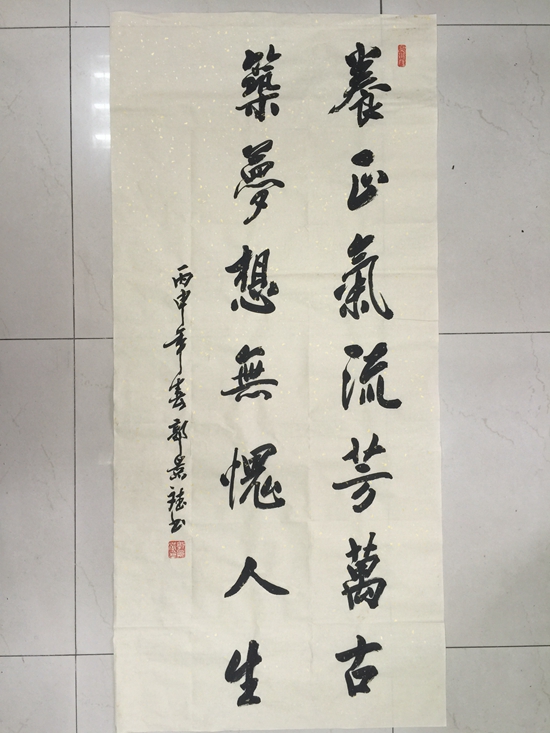 養正氣流芳萬古
築夢想無愧人生
丙申年春郭景林書